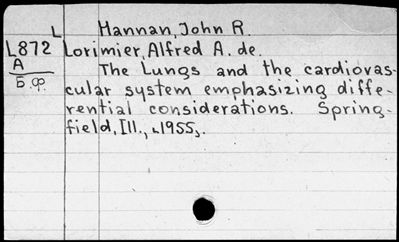 L Hannan, John R.
L872 Lorimier, Alfred A. de.
A The Lungs and the cardiovas-
cular system emphasizing diffe-
rential considerations. Spring-
field, Ill., c1955.